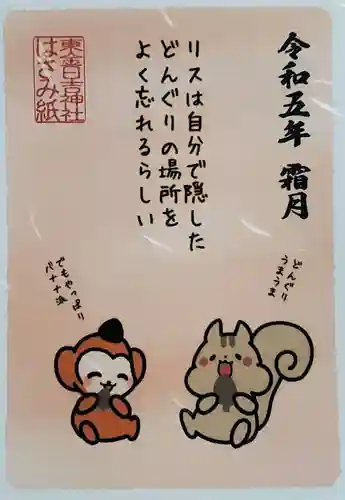 令和五年 霜月
リスは自分で隠した
どんぐりの場所を
よく忘れるらしい
東音日吉神社
はさみ紙
どんぐり
うまうま
でもやっぱり
バナナ派